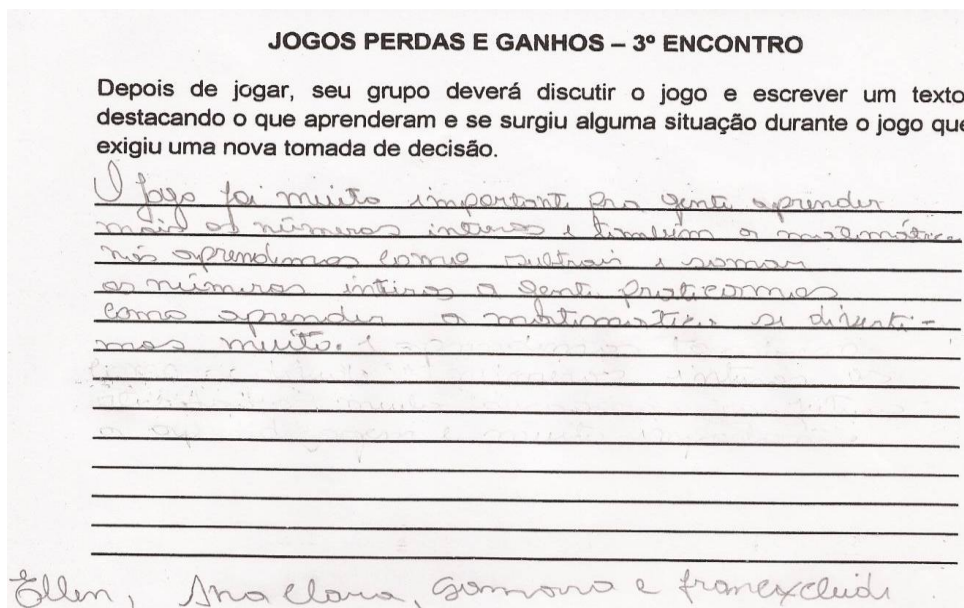 JOGOS PERDAS E GANHOS – 3º ENCONTRO
Depois de jogar, seu grupo deverá discutir o jogo e escrever um texto
destacando o que aprenderam e se surgiu alguma situação durante o jogo que
exigiu uma nova tomada de decisão.
O jogo foi muito important pra gente aprender
mais os números inteiros e também a matemática
nós aprendemos como subtrair e somar
os números inteiros a gente praticamos
como aprender a matimatica se diverti-
mos muito.
Ellen, Ana Clara, e